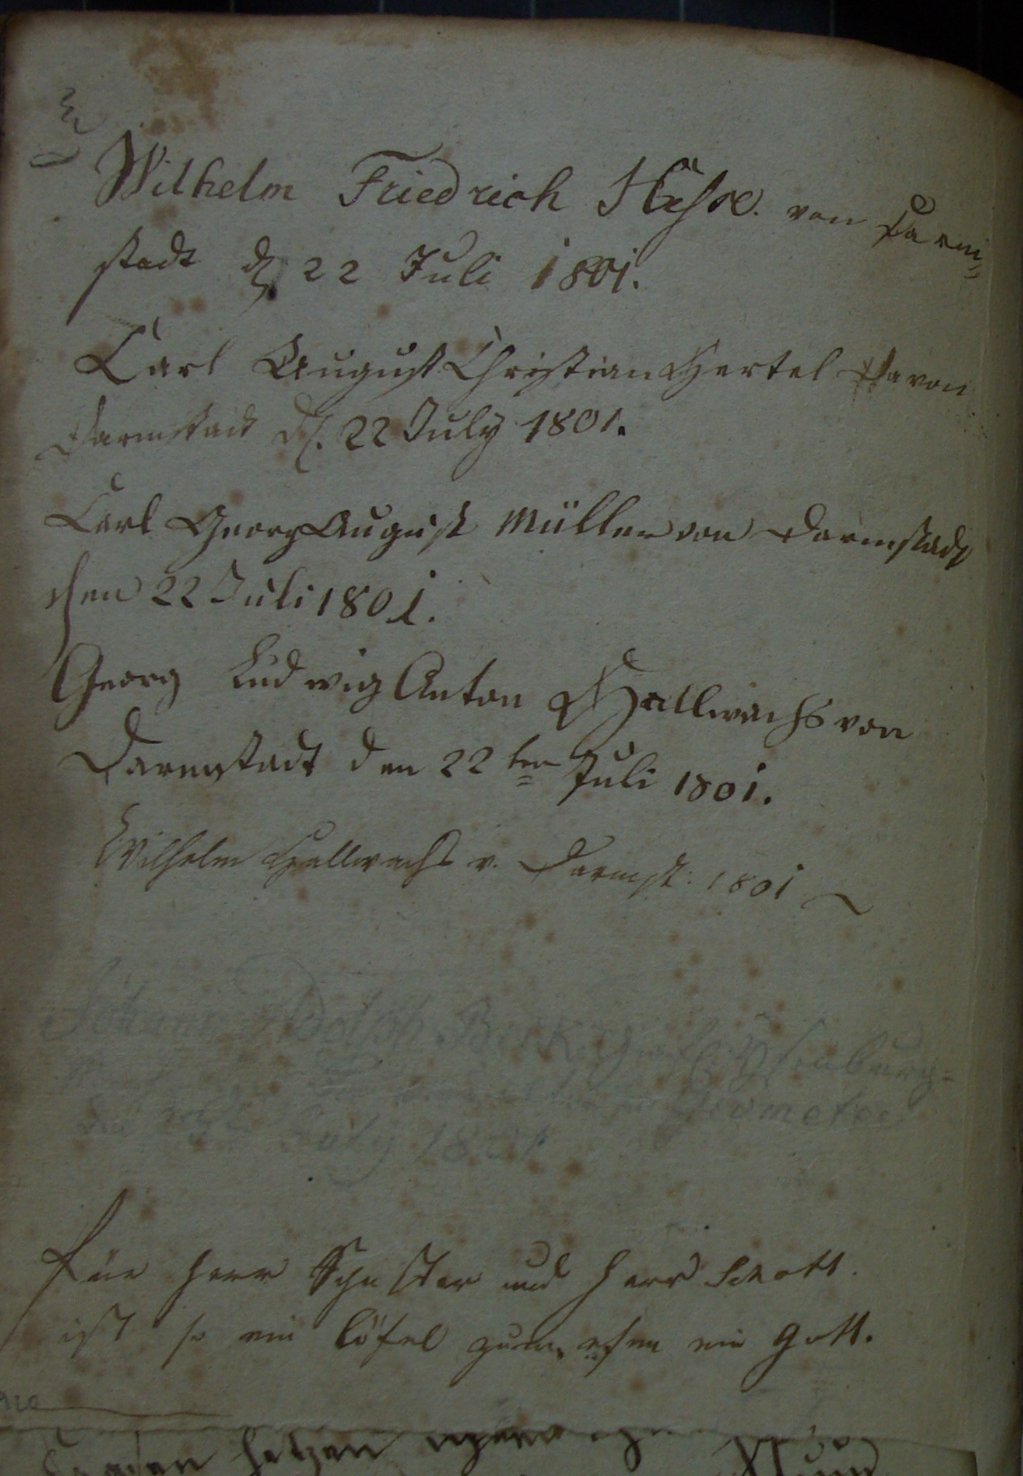 Wilhelm Friedrich Hesse. von Darm-
stadt d. 22 Juli 1801.
Carl August Christian Hertel Da von
Darmstadt d. 22 July 1801.
Carl Georg August Müller von Darmstadt
den 22 Juli 1801.
Georg Ludwig Anton Hallwachs von
Darmstadt den 22ten Juli 1801.
Wilhelm Hallwachs v. Darmst: 1801
Johann Adolph Ysenburg-
Geometer
July 1801
Für Herr Schuster und Herr Schott.
ist so ein löfel zum esen ein Gott.